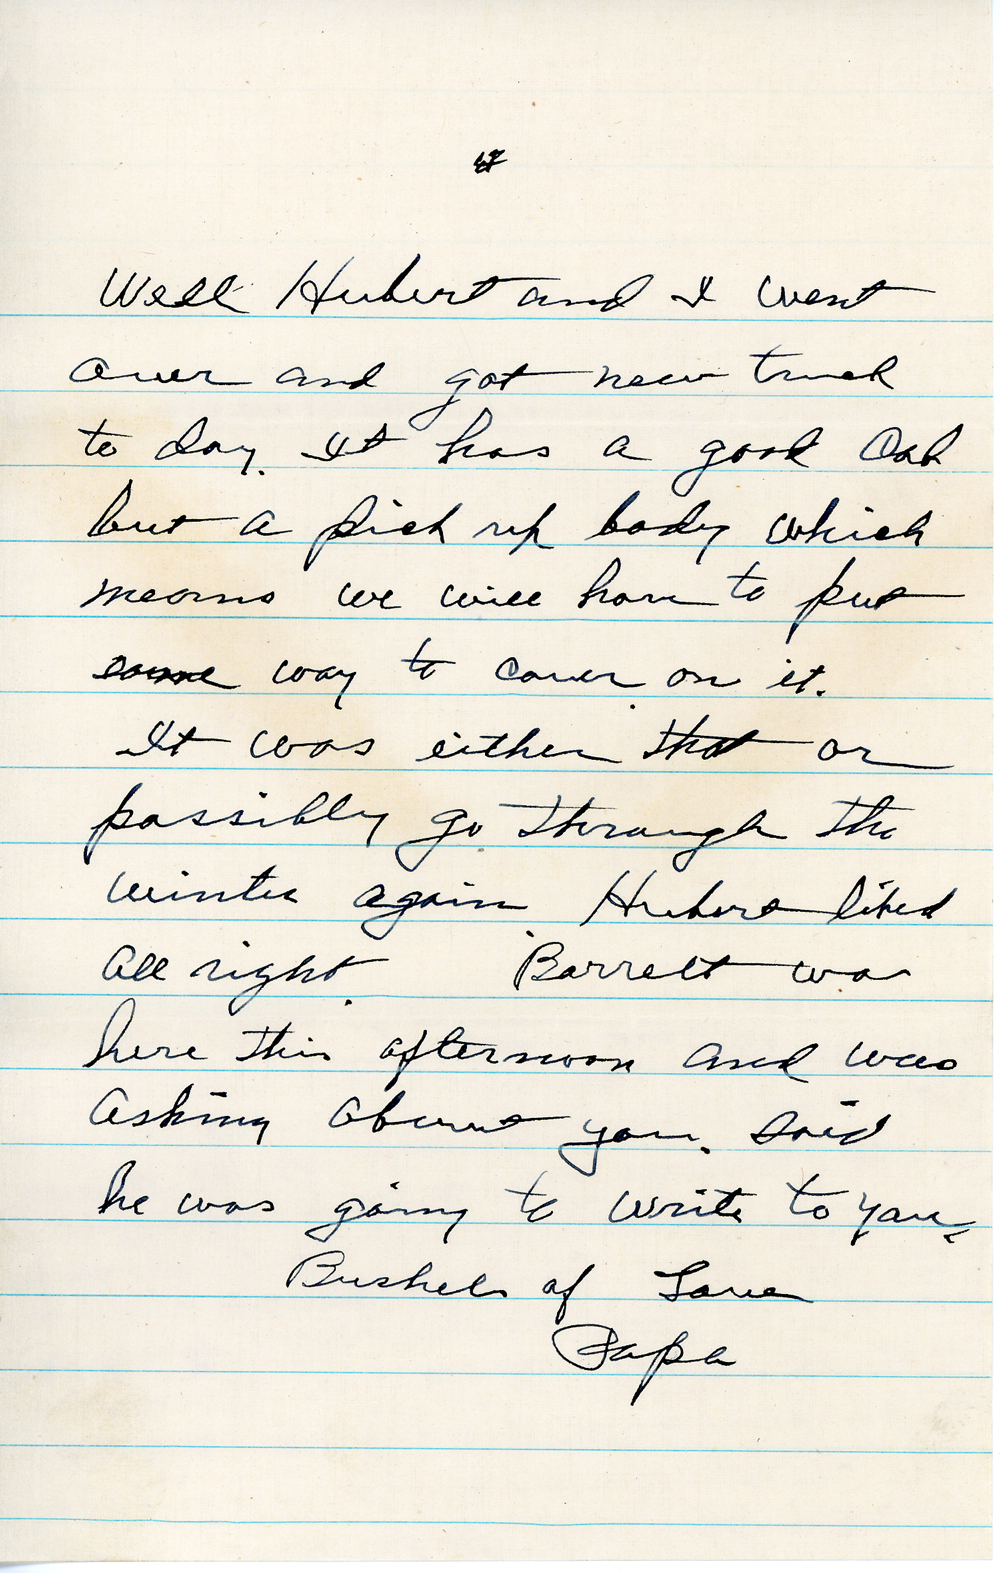 Well Hubert and I went
over and got new truck
to day. It has a good Cab
but a pick up body which
means we will have to put
some way to cover on it.
It was either that or
possibly go through the
winter again Hubert liked
all right. Barrett was
here this afternoon and was
asking about you. Said
he was going to write to you.
Bushels of Love
Papa